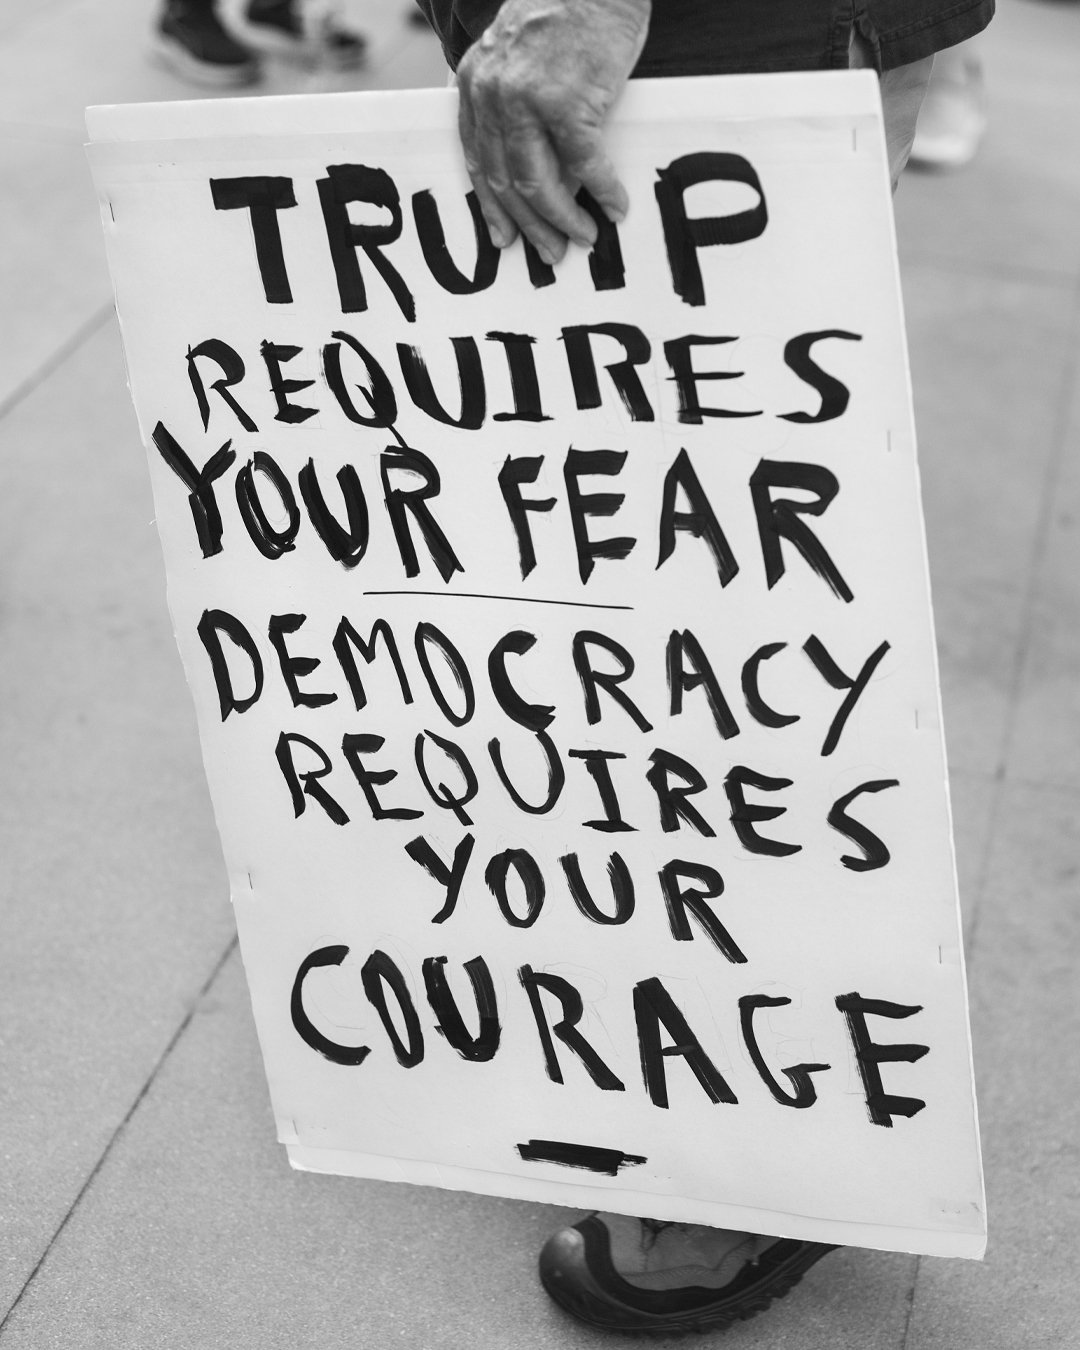 TRUMP
REQUIRES
YOUR FEAR
DEMOCRACY
REQUIRES
YOUR
COURAGE